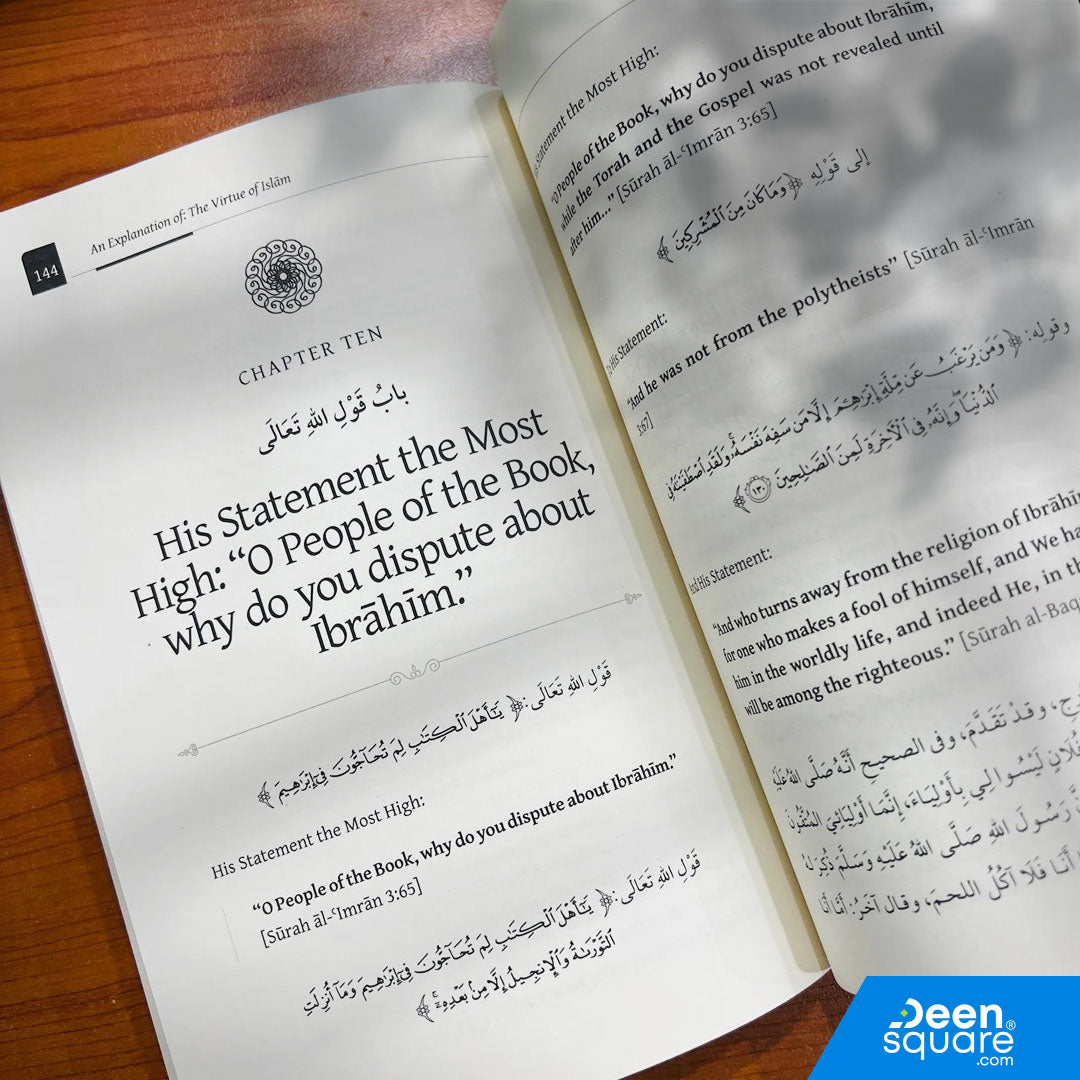 An Explanation of: The Virtue of Islām
144
CHAPTER TEN
بابُ قَوْلِ اللهِ تَعَالَى
His Statement the Most
High: “O People of the Book,
why do you dispute about
Ibrāhīm.”
قَوْلِ اللهِ تَعَالَى: ﴿ يَـٰٓأَهْلَ ٱلْكِتَـٰبِ لِمَ تُحَآجُّونَ فِىٓ إِبْرَٰهِيمَ ﴾
His Statement the Most High:
“O People of the Book, why do you dispute about Ibrāhīm.”
[Sūrah āl-ʿImrān 3:65]
قَوْلِ اللهِ تَعَالَى: ﴿ يَـٰٓأَهْلَ ٱلْكِتَـٰبِ لِمَ تُحَآجُّونَ فِىٓ إِبْرَٰهِيمَ وَمَآ أُنزِلَتِ
ٱلتَّوْرَىٰةُ وَٱلْإِنجِيلُ إِلَّا مِنۢ بَعْدِهِۦٓ ۚ ﴾
Statement the Most High:
“O People of the Book, why do you dispute about Ibrāhīm,
while the Torah and the Gospel was not revealed until
after him...” [Sūrah āl-ʿImrān 3:65]
إلى قَوْلِهِ ﴿ وَمَا كَانَ مِنَ ٱلْمُشْرِكِينَ ﴾
His Statement:
“And he was not from the polytheists” [Sūrah āl-ʿImrān
3:67]
وقوله: ﴿ وَمَن يَرْغَبُ عَن مِّلَّةِ إِبْرَٰهِـۧمَ إِلَّا مَن سَفِهَ نَفْسَهُۥ ۚ وَلَقَدِ ٱصْطَفَيْنَـٰهُ فِى
ٱلدُّنْيَا ۖ وَإِنَّهُۥ فِى ٱلْـَٔاخِرَةِ لَمِنَ ٱلصَّـٰلِحِينَ ١٣٠ ﴾
And His Statement:
“And who turns away from the religion of Ibrāhī
for one who makes a fool of himself, and We ha
him in the worldly life, and indeed He, in th
will be among the righteous.” [Sūrah al-Baq
وقدْ تَقَدَّمَ، وفى الصحيح أَنَّهُ صَلَّى اللهُ عَلَيْهِ
لَيْسُوا لِي بِأَوْلِيَاءَ، إِنَّمَا أَوْلِيَائِي المُتَّقُونَ
رَسُولَ اللهِ صَلَّى اللهُ عَلَيْهِ وَسَلَّمَ ذُكِرَ لهُ
أَنَا فَلَا آكُلُ اللحمَ، وقال آخَرُ: أمَّا أنا
Deen
square®
.com